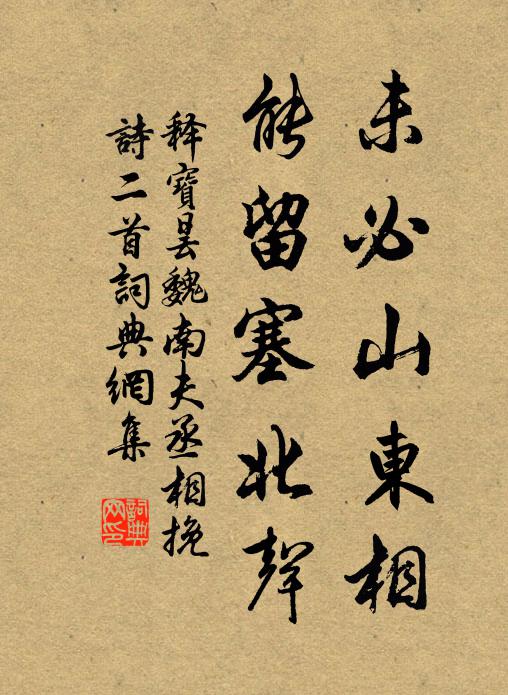 未必山東相
能留塞北聲
释寶昙魏南夫丞相挽
詩二首詞典網集
詞典网印